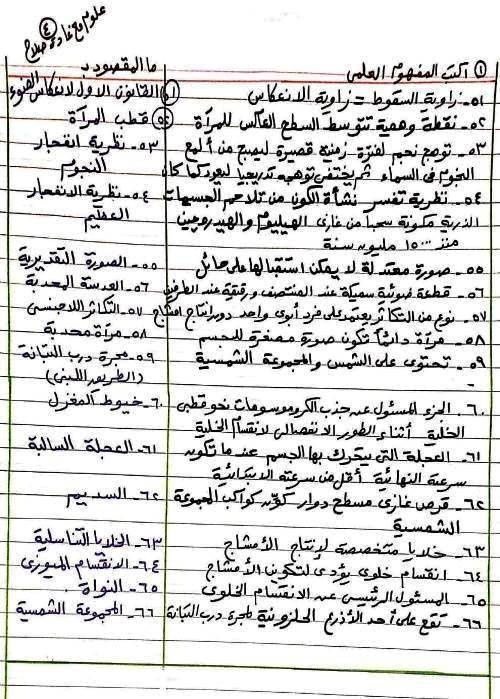 علوم مع غادة صلاح
٤
① اكتب المفهوم العلمى
ما المقصود ب
٥١- زاوية السقوط = زاوية الانعكاس
٥١ القانون الأول لانعكاس الضوء
٥٢- نقطة وهمية تتوسط السطح العاكس للمرآة
٥٢ قطب المرآة
٥٣- توهج نجم لفترة زمنية قصيرة ليصبح من ألمع
٥٣- نظرية انفجار
النجوم فى السماء ثم يختفى توهجه تدريجيا ليعود كما كان
النجوم
٥٤- نظرية تفسر نشأة الكون من تلاحم الجسيمات
٥٤- نظرية الانفجار
الذرية مكونة سحبا من غازى الهيليوم والهيدروجين
العظيم
منذ ١٥٠٠٠ مليون سنة
٥٥- صورة معتدلة لا يمكن استقبالها على حائل
٥٥- الصورة التقديرية
٥٦- قطعة ضوئية سميكة عند المنتصف ورقيقة عند الطرفين
٥٦- العدسة المحدبة
٥٧- نوع من التكاثر يعتمد على فرد أبوى واحد دون إنتاج أمشاج
٥٧- التكاثر اللاجنسى
٥٨- مرآة دائماً تكون صورة مصغرة للجسم
٥٨- مرآة محدبة
٥٩- تحتوى على الشمس والمجموعة الشمسية
٥٩- مجرة درب التبانة
(الطريق اللبنى)
٦٠- الجزء المسئول عن جذب الكروموسومات نحو قطبى
٦٠- خيوط المغزل
الخلية أثناء الطور الانفصالى لانقسام الخلية
٦١- العجلة التى يتحرك بها الجسم عندما تكون
٦١- العجلة السالبة
سرعته النهائية أقل من سرعته الابتدائية
٦٢- قرص غازى مسطح دوار كوّن كواكب المجموعة
٦٢- السديم
الشمسية
٦٣- خلايا متخصصة لإنتاج الأمشاج
٦٣- الخلايا التناسلية
٦٤- انقسام خلوى يؤدى لتكوين الأمشاج
٦٤- الانقسام الميوزى
٦٥- المسئول الرئيسى عن الانقسام الخلوى
٦٥- النواة
٦٦- تقع على أحد الأذرع الحلزونية لمجرة درب التبانة
٦٦- المجموعة الشمسية